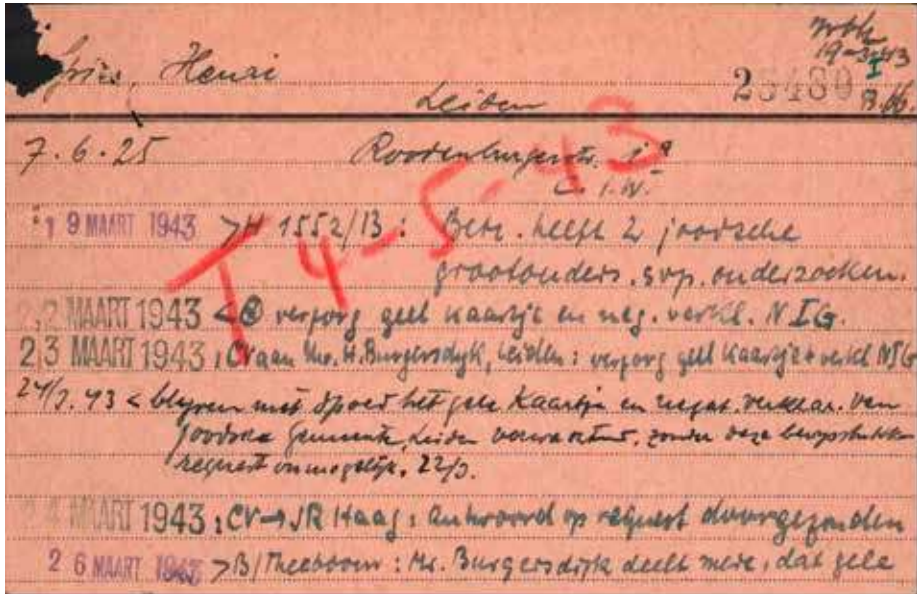 Vries, Henri
19-3-43
I
23480 B.66
Leiden
7.6.25 Roodenburgerstr. 1a
C.I.W.
19 MAART 1943 >H 1552/13: Betr. heeft 2 joodsche
grootouders. svp. onderzoeken.
T 4-5-43
22 MAART 1943 < verzorg geel kaartje en neg. verkl. NIG.
23 MAART 1943 : CV aan Mr. H. Burgersdyk, Leiden: verzorg geel kaartje + verkl NIG
24/3.43 < blyven met spoed het gele kaartje en negat. verklar. van
Joodsche Gemeente Leiden verwachten, zonder deze bewijsstukken
request onmogelijk. 22/3.
24 MAART 1943 : CV→JR Haag: antwoord op request doorgezonden
26 MAART 1943 >B/Theeboom: Mr. Burgersdijk deelt mede, dat gele